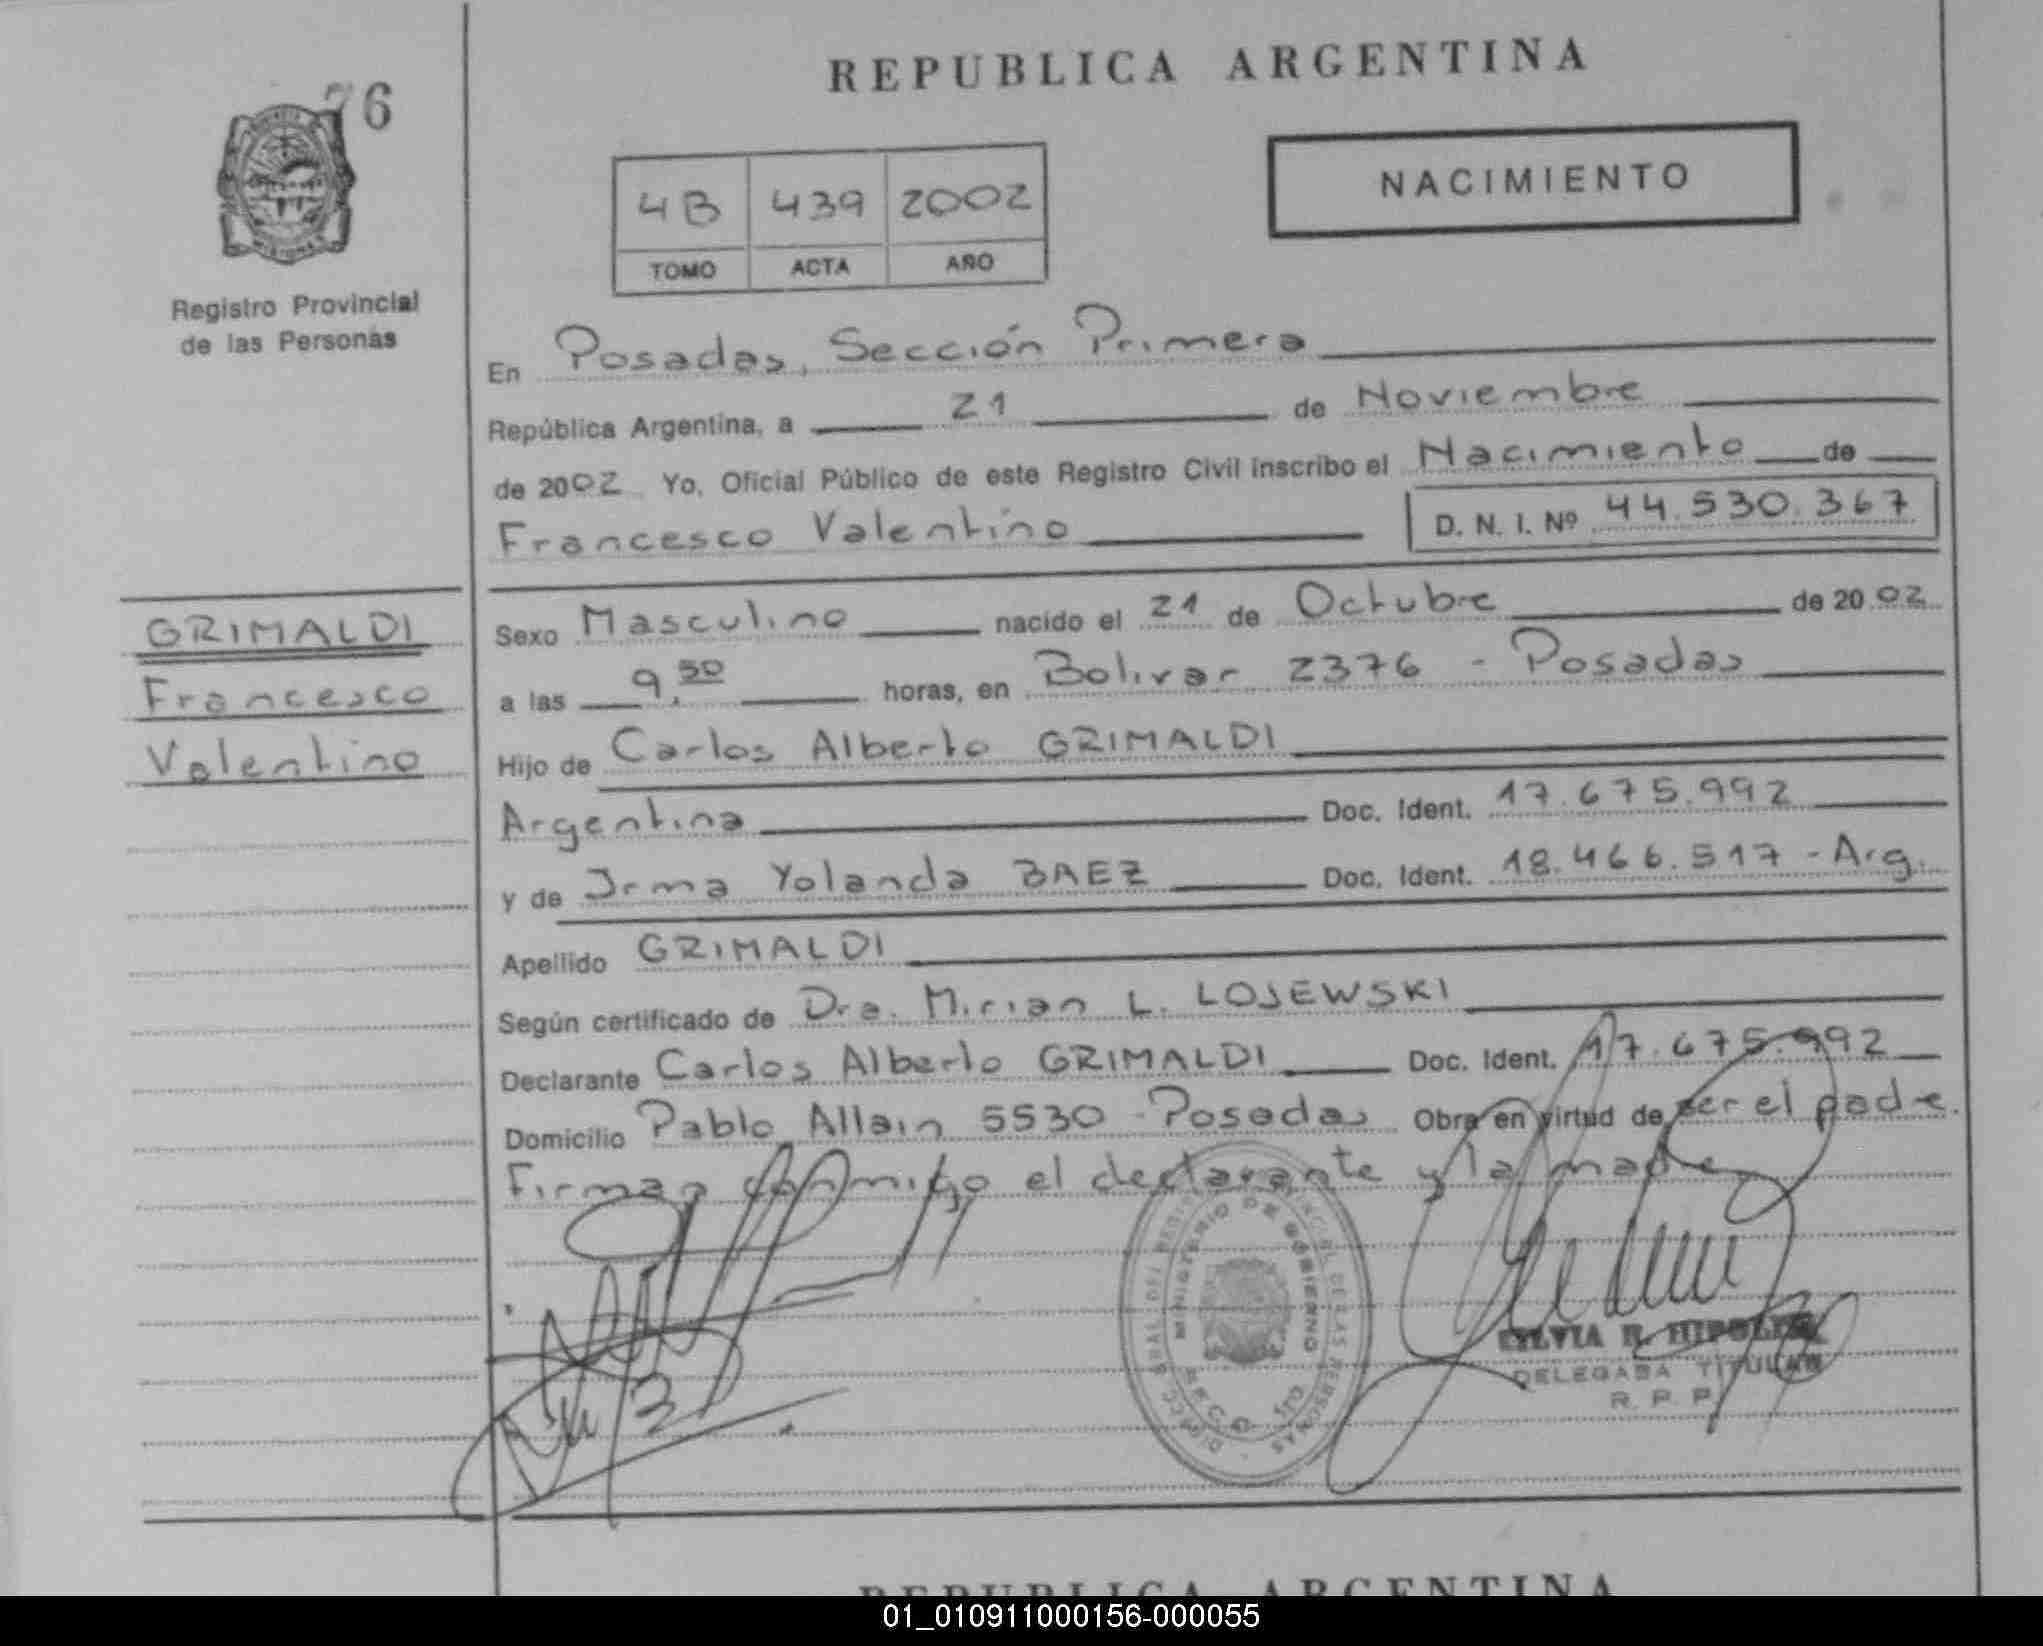 76
REPUBLICA ARGENTINA
NACIMIENTO
4B 439 2002
TOMO ACTA AÑO
Registro Provincial
de las Personas
En Posadas, Sección Primera
República Argentina, a 21 de Noviembre
de 2002 Yo, Oficial Público de este Registro Civil inscribo el Nacimiento de
Francesco Valentino D. N. I. Nº 44.530.367
GRIMALDI
Francesco
Valentino
Sexo Masculino nacido el 21 de Octubre de 2002
a las 9,30 horas, en Bolivar 2376 - Posadas
Hijo de Carlos Alberto GRIMALDI
Argentina Doc. Ident. 17.675.992
y de Irma Yolanda BAEZ Doc. Ident. 18.466.517 - Arg.
Apellido GRIMALDI
Según certificado de Dra. Mirian L. LOJEWSKI
Declarante Carlos Alberto GRIMALDI Doc. Ident. 17.675.992
Domicilio Pablo Allain 5530 - Posadas Obra en virtud de ser el padre.
Firman conmigo el declarante y la madre
MINISTERIO DE GOBIERNO
DELEGADA TITULAR
R. P. P.
REPUBLICA ARGENTINA
01_010911000156-000055